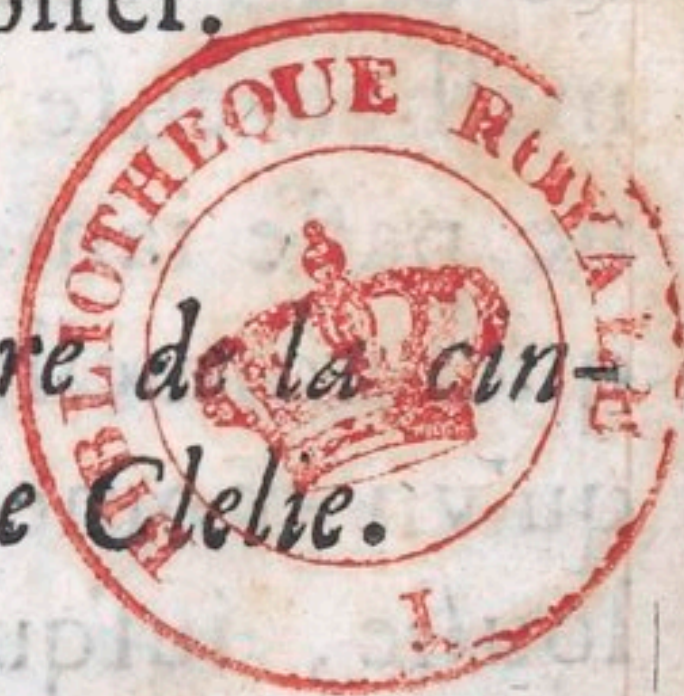 BIBLIOTHEQUE ROYALE
re de la cin-
e Clelie.
I